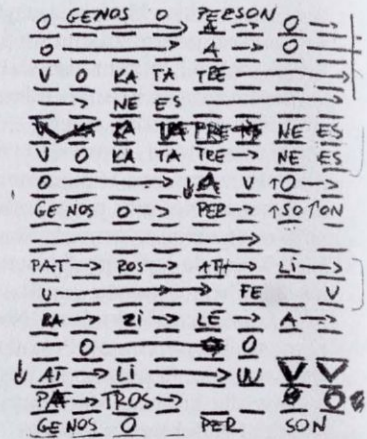 GENOS O PERSON
O → A → O →
O → A → O →
V O KA TA TRE →
→ NE ES →
TRE NE NE ES
V O KA TA TRE → NE ES
O → ↓ A V ↑ O →
GE NOS O → PER → ↑ SO ↑ ON
→
PAT → ROS → ATH → LI →
U → → FE U
RA → ZI → LE → A →
O → O
↓ AT → LI → W V V
PA → TROS → O O
GENOS O PER SON